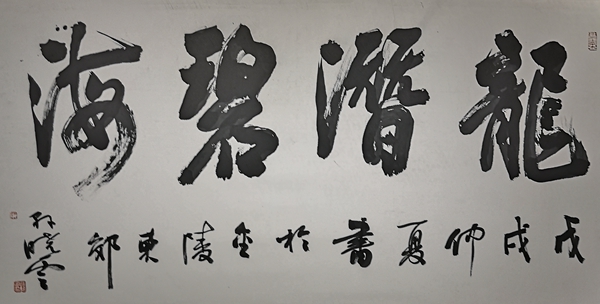 龍潛碧海
戊戌仲夏書於金陵東郊
孫曉雲